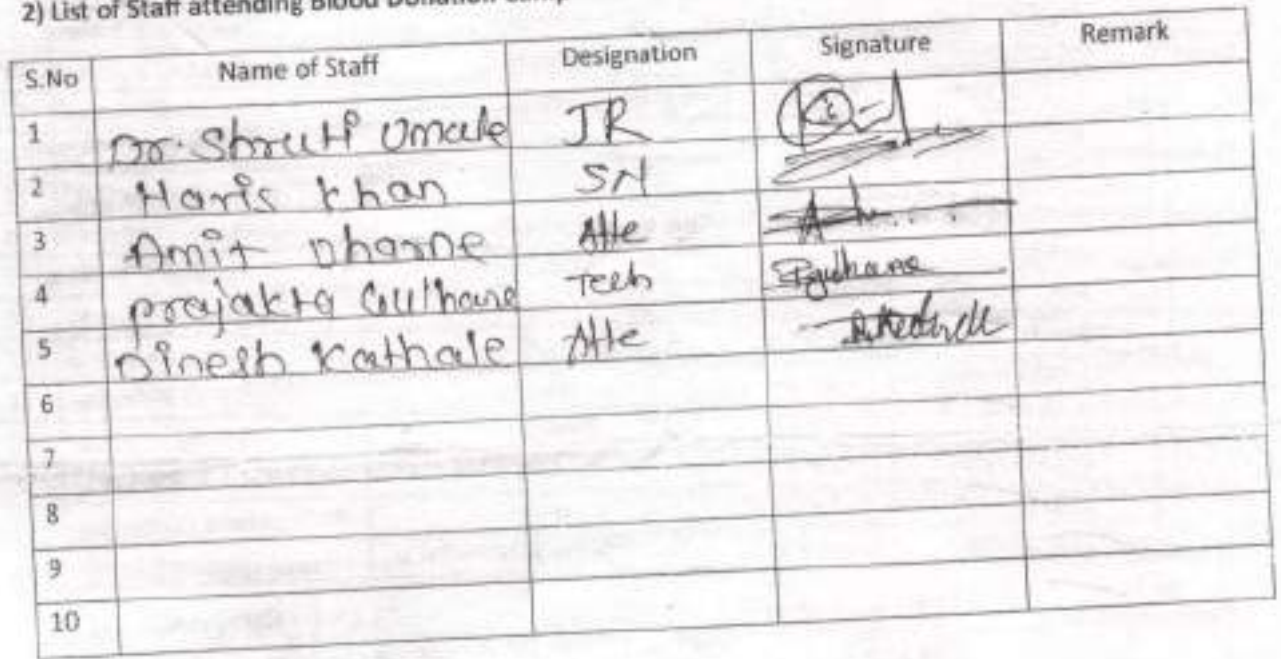 2) List of Staff attending Blood Donation Camp
S.No Name of Staff Designation Signature Remark
1 Dr. Shruti Umale JR
2 Haris Khan SN
3 Amit Dharne Atte
4 prajakta Gulhane Tech Pgulhane
5 Dinesh Kathale Atte
6
7
8
9
10